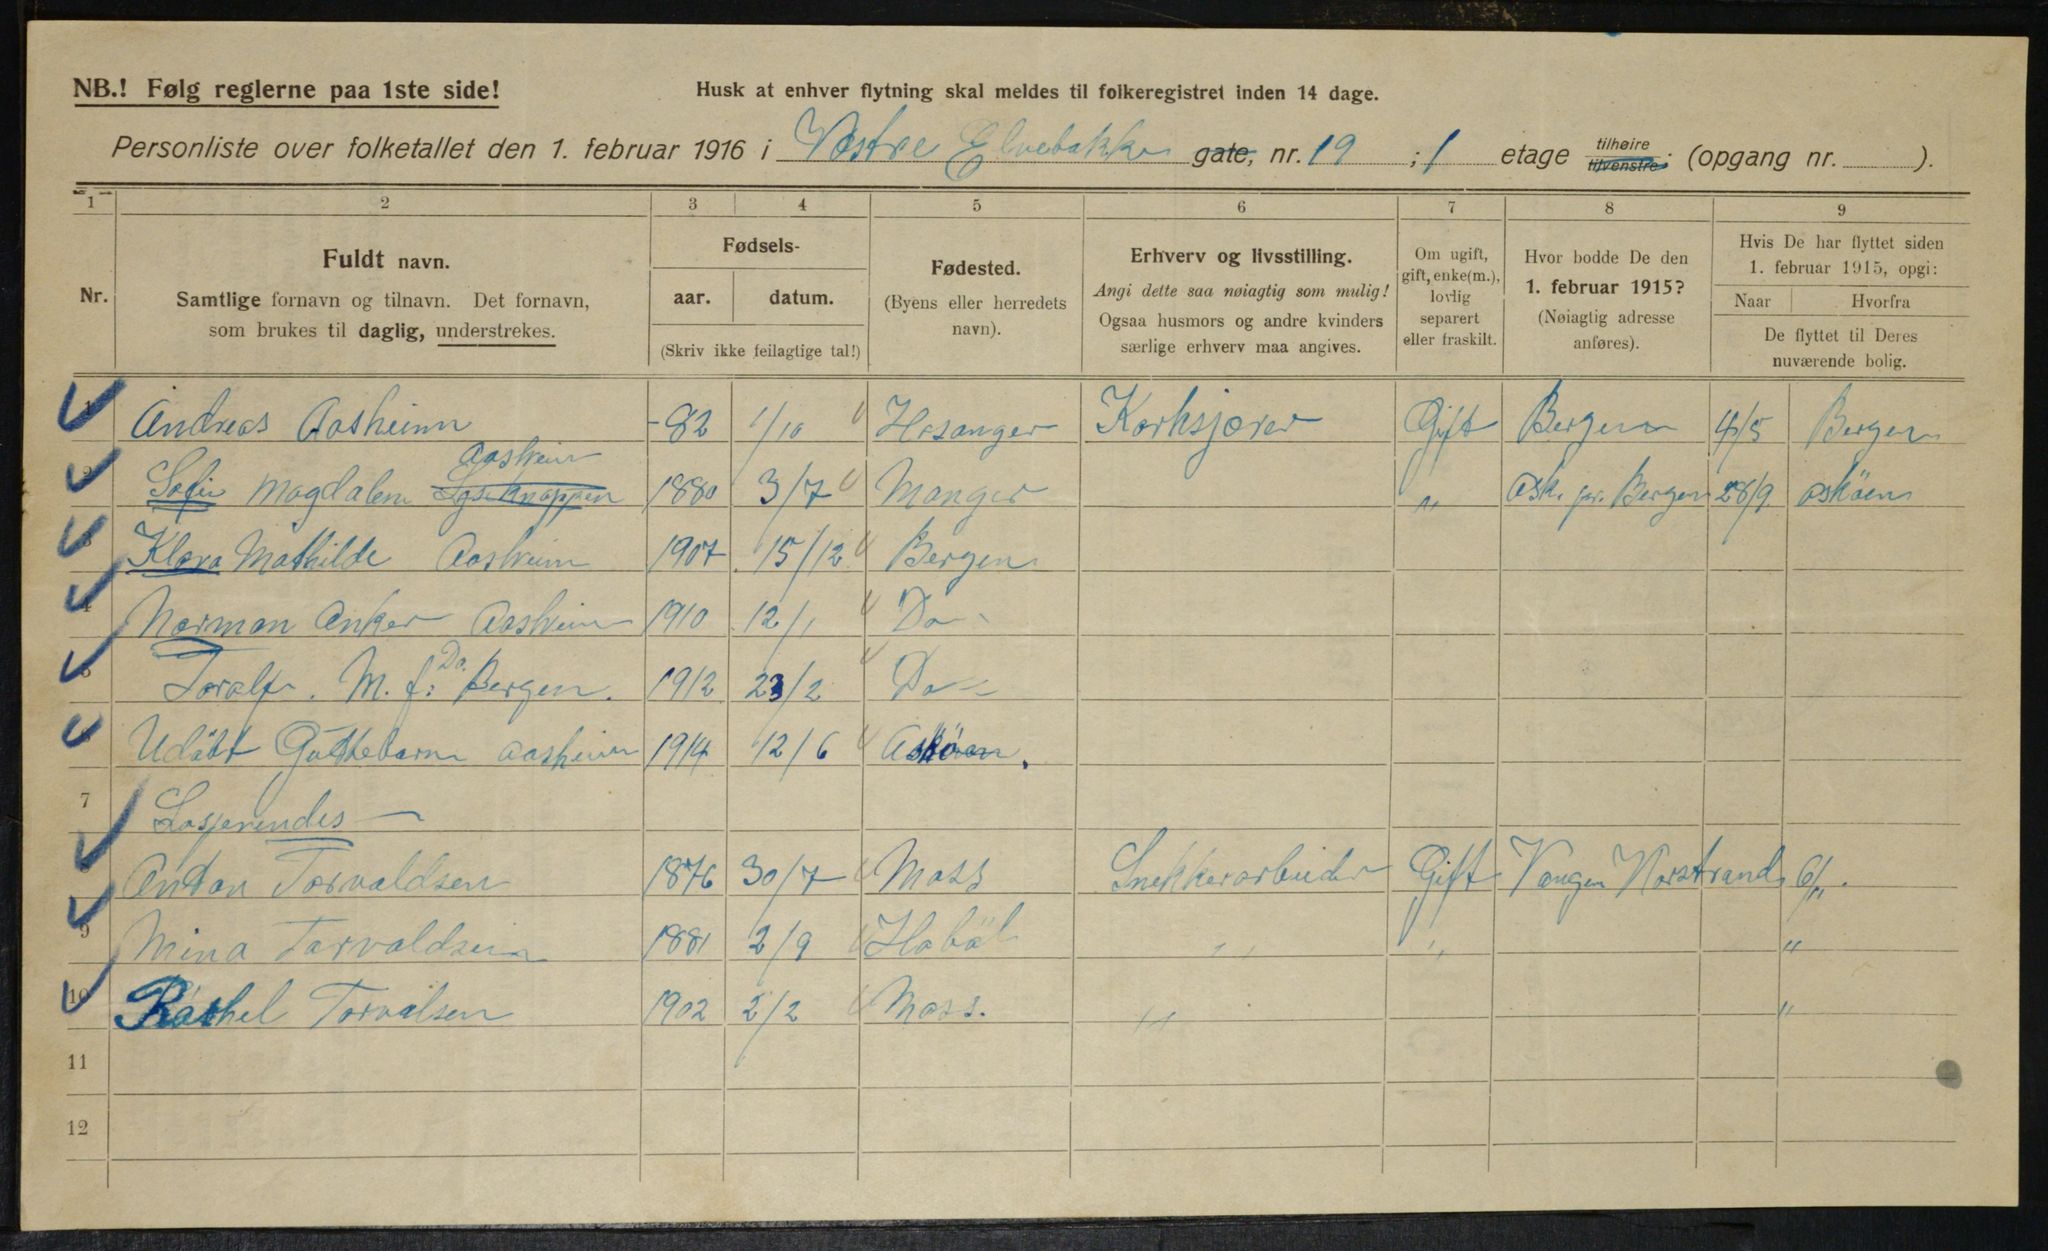 NB.! Følg reglerne paa 1ste side!
Husk at enhver flytning skal meldes til folkeregistret inden 14 dage.
Personliste over folketallet den 1. februar 1916 i Vestre Elvebakke gate, nr. 19 ; 1 etage tilhøire tilvenstre; (opgang nr. ).
1 2 3 4 5 6 7 8 9
Nr.
Fuldt navn.
Samtlige fornavn og tilnavn. Det fornavn,
som brukes til daglig, understrekes.
Fødsels-
aar. datum.
(Skriv ikke feilagtige tal!)
Fødested.
(Byens eller herredets
navn).
Erhverv og livsstilling.
Angi dette saa nøiagtig som mulig!
Ogsaa husmors og andre kvinders
særlige erhverv maa angives.
Om ugift,
gift, enke(m.),
lovlig
separert
eller fraskilt.
Hvor bodde De den
1. februar 1915?
(Nøiagtig adresse
anføres).
Hvis De har flyttet siden
1. februar 1915, opgi:
Naar Hvorfra
De flyttet til Deres
nuværende bolig.
1 Andreas Aasheim -82 1/10 Hosanger Korkskjærer Gift Bergen 4/5 Bergen
Aasheim
2 Sofie Magdalene Lyseknappen 1880 3/7 Manger " Ask. pr. Bergen 28/9 Asköen
3 Klara Mathilde Aasheim 1907 15/12 Bergen
4 Norman Anker Aasheim 1910 12/1 Do
5 Toralf. M. f: Do. Bergen. 1912 23/2 Do
6 Udöbt Guttebarn Aasheim 1914 12/6 Asköen.
7 Losjerendes
Anton Torvaldsen 1876 30/7 Moss Snekkerarbeider Gift Vangen Norstrand 6/11.
9 Mina Torvaldsen 1881 2/9 Haböl " " "
10 Rashel Torvalsen 1902 2/2 Moss. " "
11
12